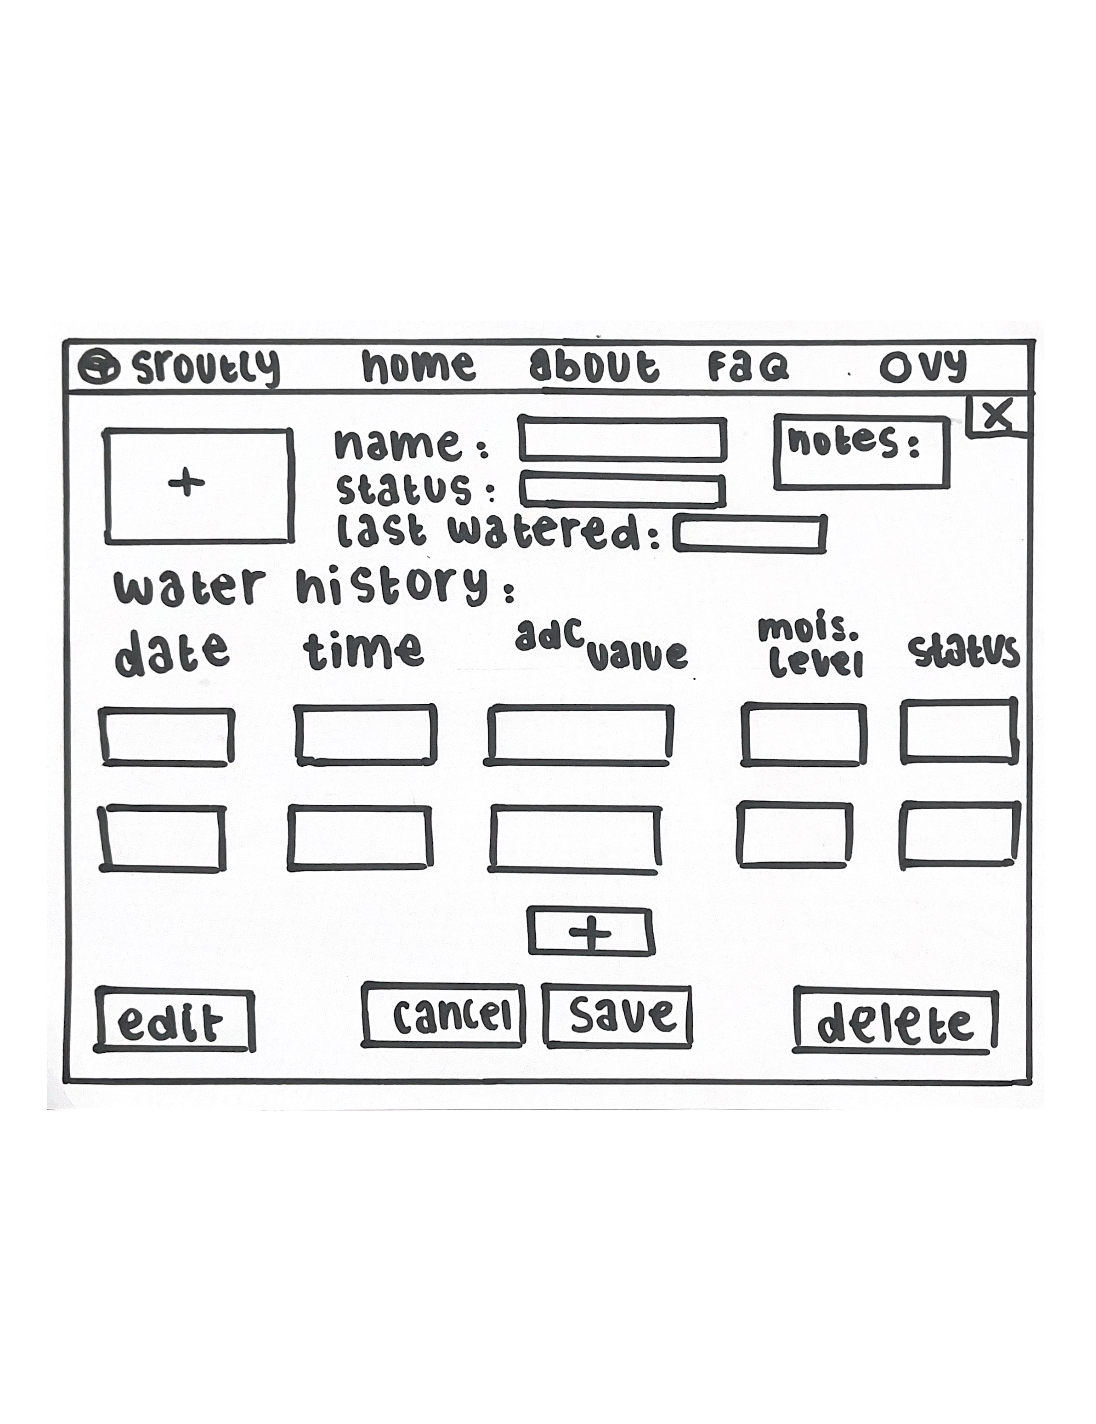 sroutly home about FaQ Ovy
X
name:
notes:
+
status:
last watered:
water history:
date time adc value mois. level status
+
edit cancel save delete